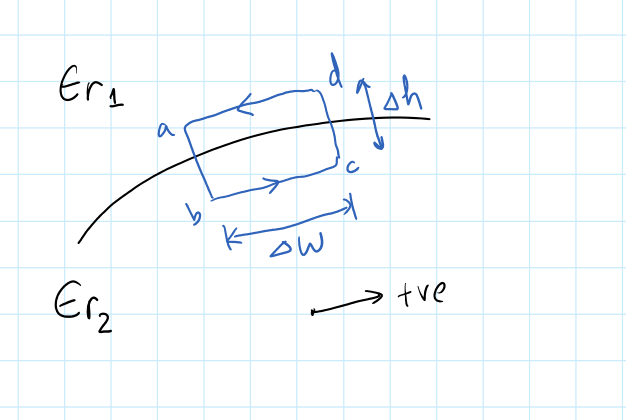 Er₁
d
Δh
a
c
b
ΔW
Er₂
+ve